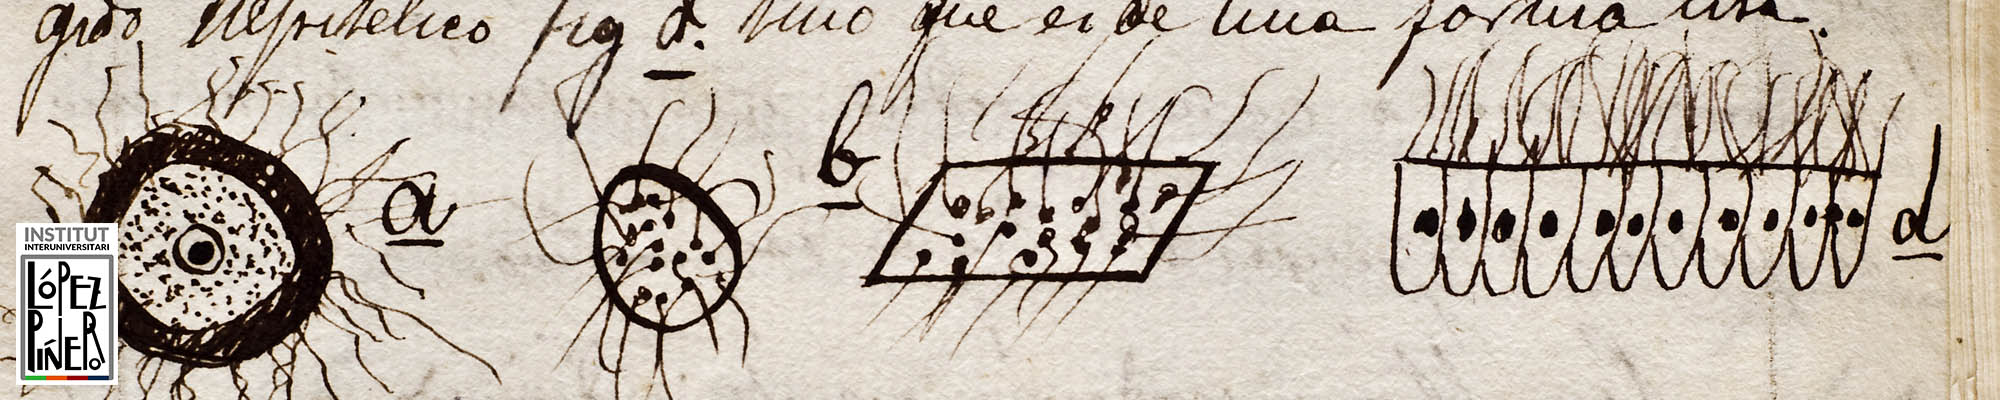 gido fig d. sino que es de una forma
a
b
d
INSTITUT
INTERUNIVERSITARI
LÓPEZ
PIÑERO